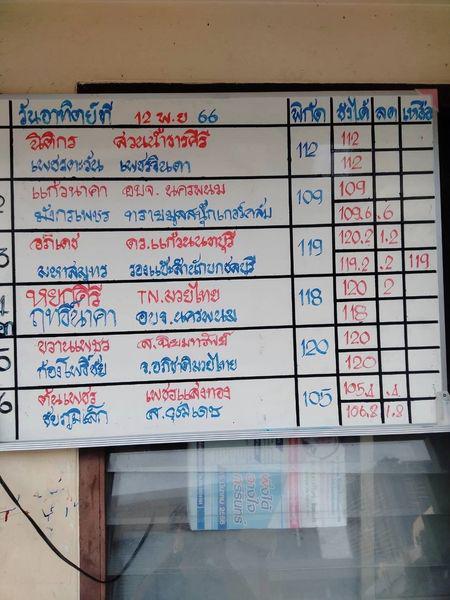 วันอาทิตย์ที่ 12 พ.ย 66 พิกัด ชั่งได้ ลด เหลือ
นิติกร สวนน้ำธารคีรี 112 112
เพชรตะวัน เพชรจินดา 112
แก้วนาคา อบจ. นครพนม 109 109
มังกรเพชร ทรายมูลสนุ๊กเกอร์คลับ 109.6 .6
3 อภิเดช ดร.แก้วนนทบุรี 119 120.2 1.2
มหาสมุทร รองแป๊ะสำนักบกชลบุรี 119.2 .2 119
หยกคีรี TN.มวยไทย 118 120 2
ฤทธิ์นาคา อบจ.นครพนม 118
5 ขวานเพชร 120 120
ก้องโพธิ์ชัย จ.อภิชาติมวยไทย 120
6 ต้นเพชร เพชรแสงทอง 105 105.4 .4
ชัยภูมิเล็ก 106.8 1.8